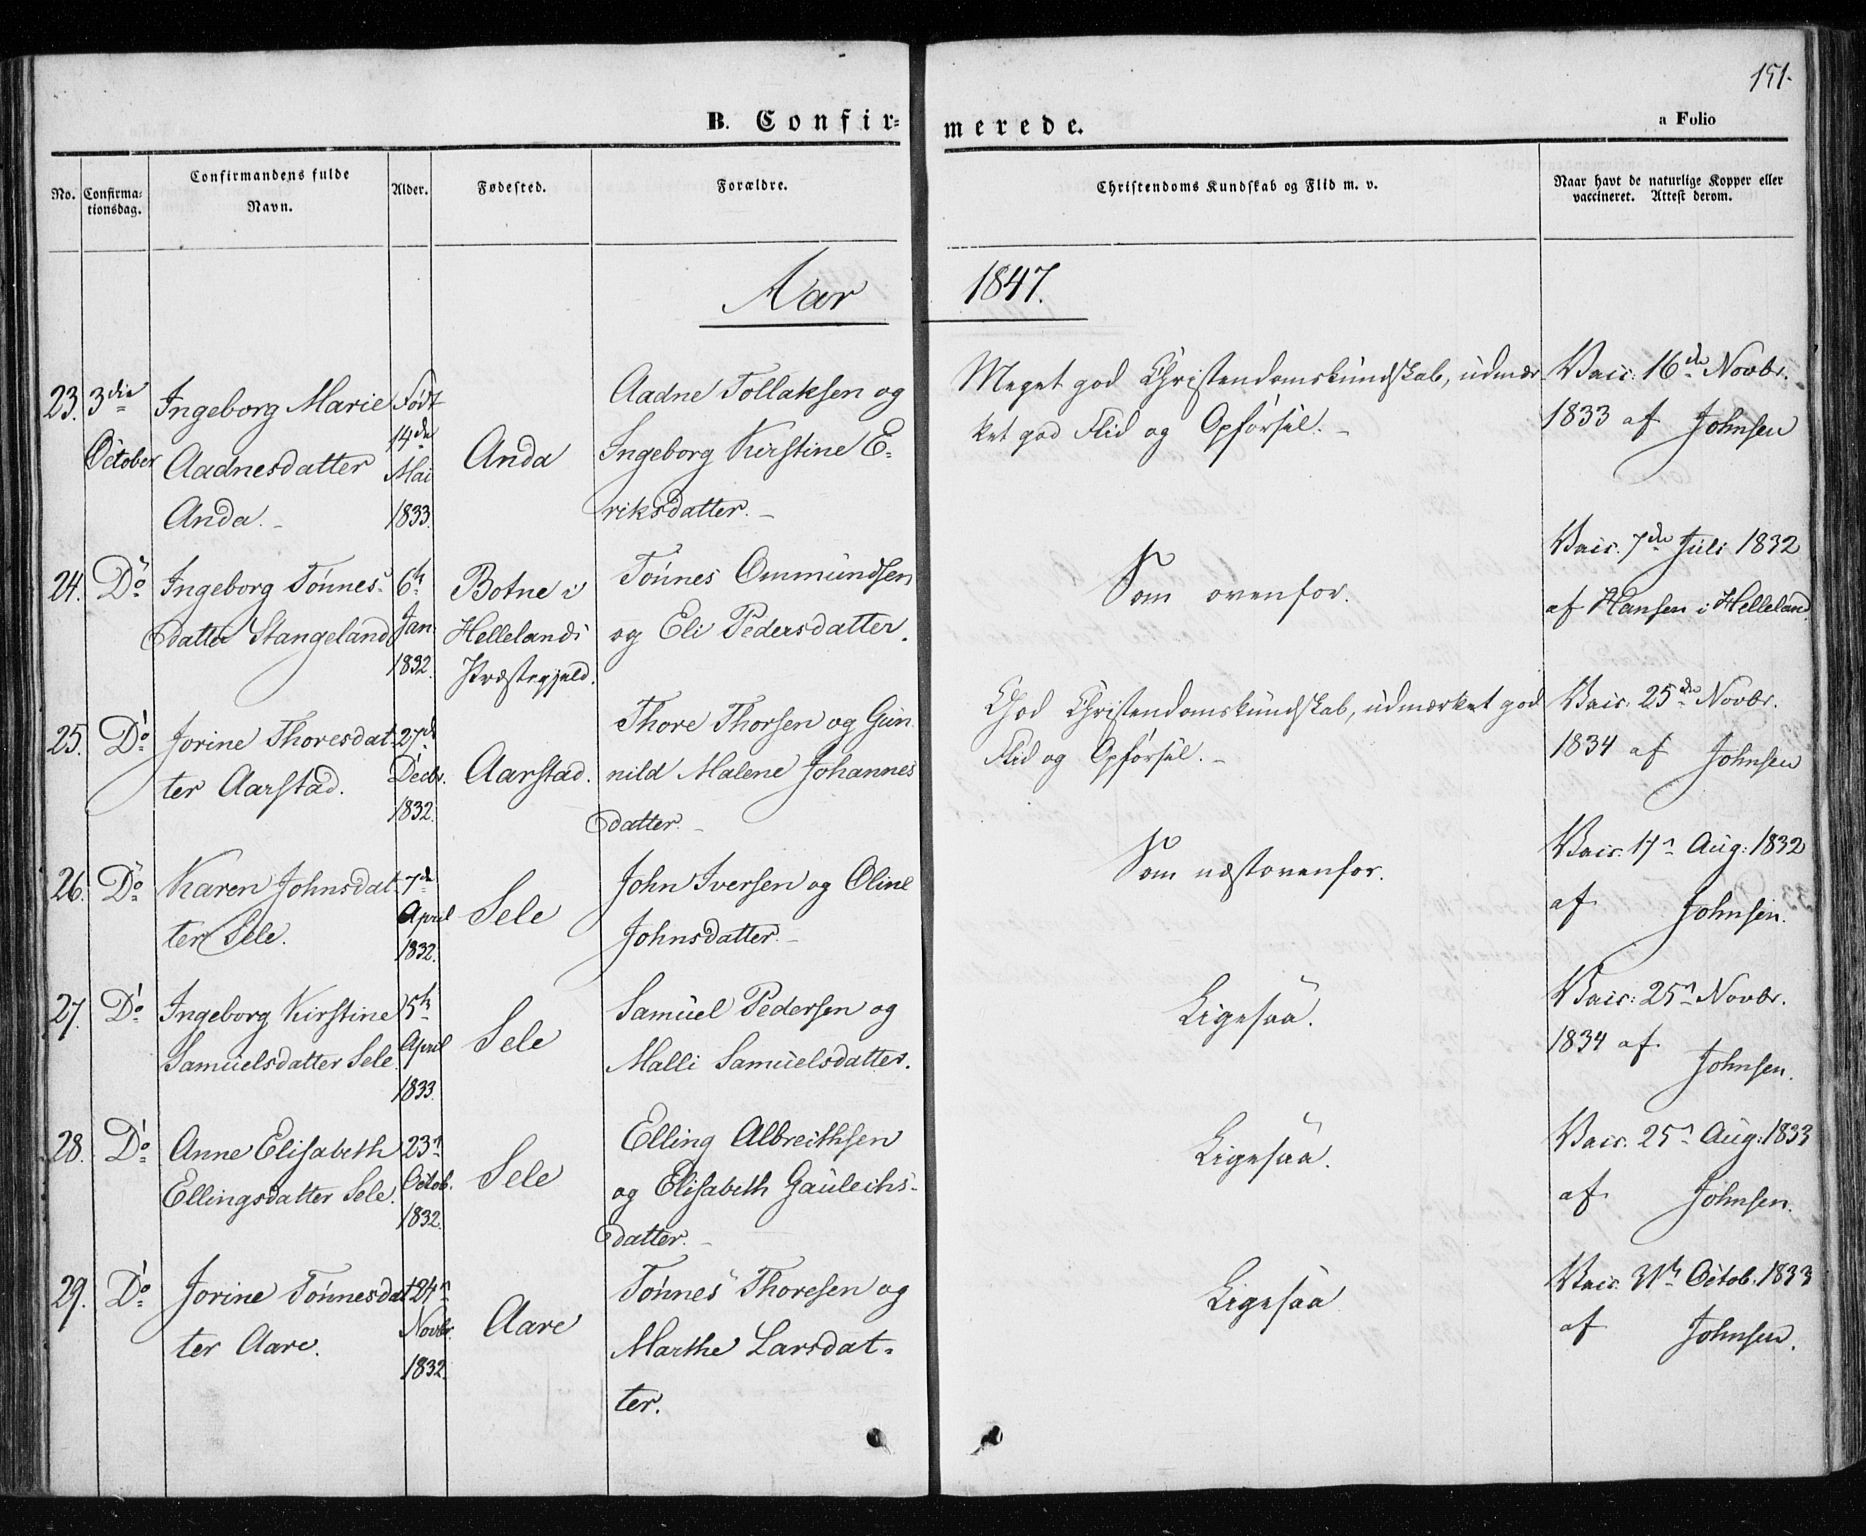 151.
B. Confir= merede.
a Folio
No.
Confirma=
tionsdag.
Confirmandens fulde
Navn.
Alder.
Fødested.
Forældre.
Christendoms Kundskab og Flid m. v.
Naar havt de naturlige Kopper eller
vaccineret. Attest derom.
Aar 1847.
23.
3die
October
Ingeborg Marie
Aadnesdatter
Anda.
Født
14de
Mai
1833.
Anda
Aadne Tollaksen og
Ingeborg Kirstine E-
riksdatter.
Meget god Christendomskundskab, udmær-
ket god Flid og Opførsel.
Vacc: 16de Novbr.
1833 af Johnsen
24.
Do
Ingeborg Tønnes-
datter Stangeland
6te
Jan.
1832.
Botne i
Hellelands
Præstegjeld.
Tønnes Ommundsen
og Eli Pedersdatter.
Som ovenfor.
Vacc. 7de Juli 1832
af Hansen i Helleland.
25.
Do
Jorine Thoresdat-
ter Aarstad.
27de
Decbr.
1832.
Aarstad.
Thore Thorsen og Gun
nild Malene Johannes
datter.
God Christendomskundskab, udmærket god
Flid og Opførsel.
Vacc: 25de Novbr.
1834 af Johnsen
26.
Do
Karen Johnsdat-
ter Sele.
7de
April
1832.
Sele
John Iversen og Oline
Johnsdatter.
Som næstovenfor.
Vacc. 17n Aug: 1832
af Johnsen.
27.
Do
Ingeborg Kirstine
Samuelsdatter Sele.
5te
April
1833.
Sele
Samuel Pedersen og
Malli Samuelsdatter.
Ligesaa.
Vacc: 25n Novbr.
1834 af
Johnsen.
28.
Do
Anne Elisabeth
Ellingsdatter Sele.
23n
Octob.
1832.
Sele
Elling Albreithsen
og Elisabeth Gauleths-
datter.
Ligesaa.
Vacc. 25n Aug: 1833
af Johnsen.
29.
Do
Jorine Tønnesdat-
ter Aare.
24n
Novbr.
1832.
Aare
Tønnes Thoresen og
Marthe Larsdat-
ter.
Ligesaa
Vacc. 31te Octob. 1833
af Johnsen.